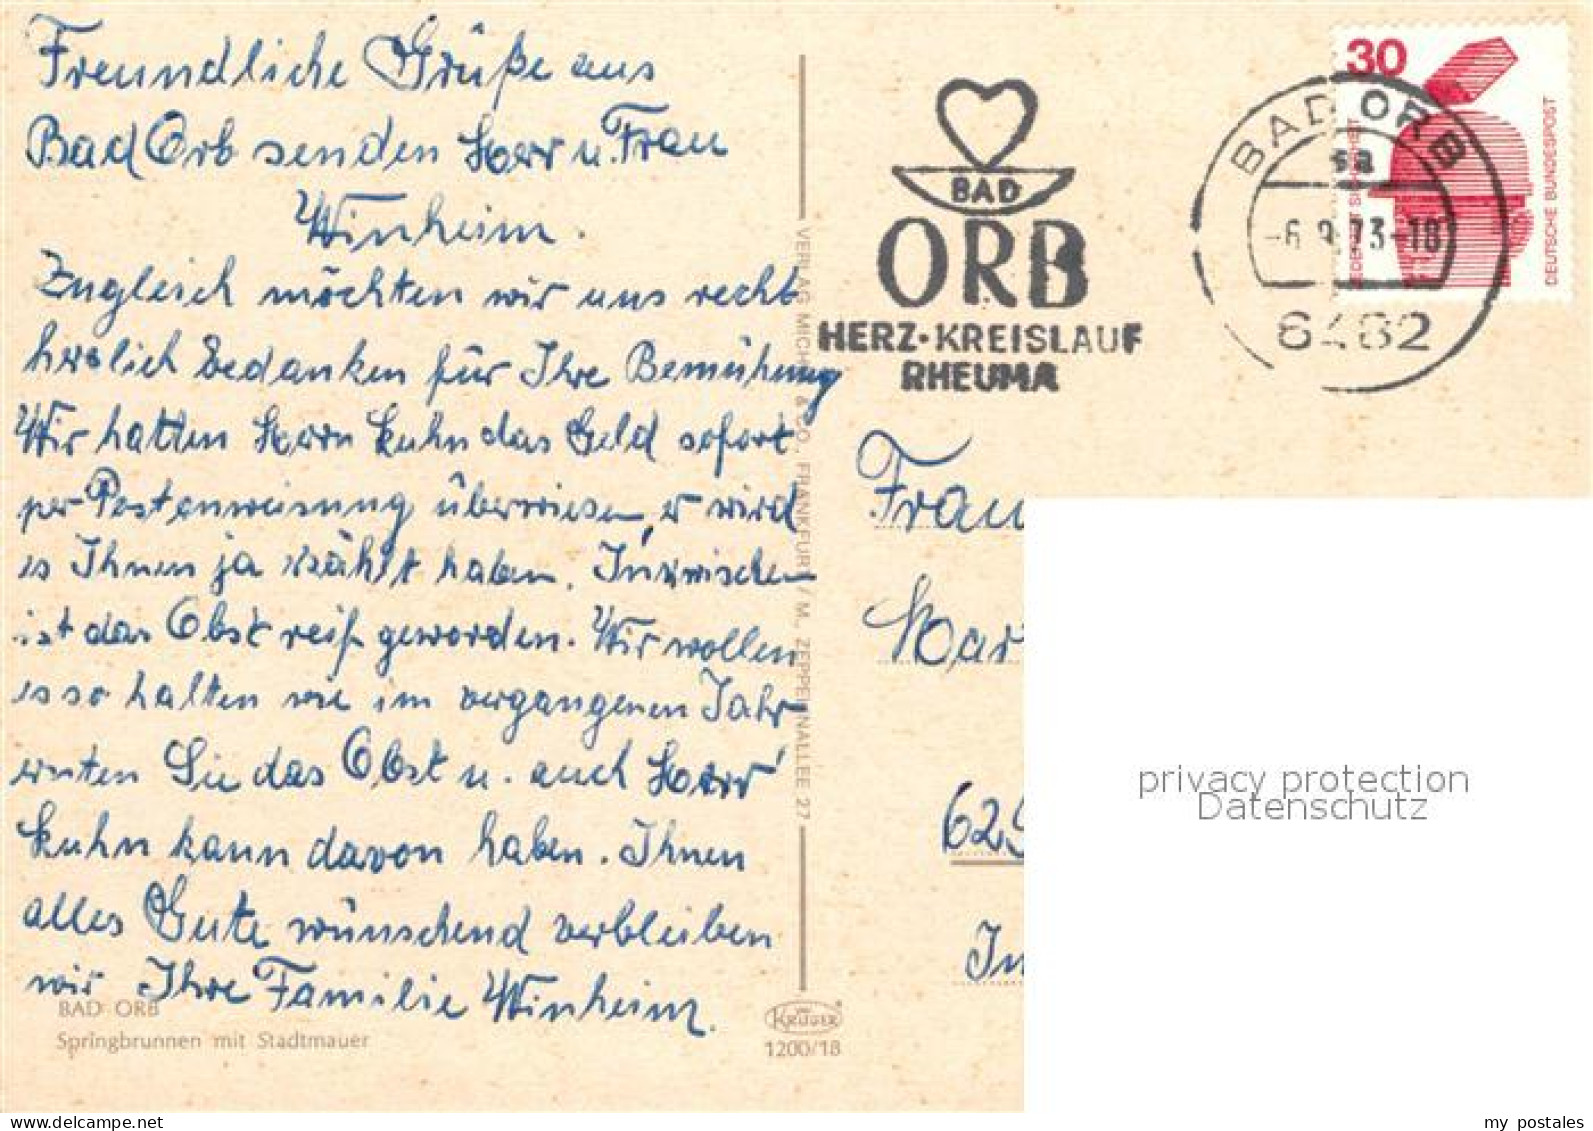 Freundliche Grüße aus
Bad Orb senden Herr u. Frau
Winheim.
Zugleich möchten wir uns recht
herzlich bedanken für Ihre Bemühung
Wir hatten Herrn Kuhn das Geld sofort
per Postanweisung überwiesen, er wird
es Ihnen ja erzählt haben. Inzwischen
ist das Obst reif geworden. Wir wollen
es so halten wie im vergangenen Jahr
ernten Sie das Obst u. auch Herr
Kuhn kann davon haben. Ihnen
alles Gute wünschend verbleiben
wir Ihre Familie Winheim.
BAD ORB
Springbrunnen mit Stadtmauer
VERLAG MICHEL & CO., FRANKFURT / M., ZEPPELINALLEE 27
KRÜGER
1200/18
BAD
ORB
HERZ·KREISLAUF
RHEUMA
BAD ORB
sa
-6.9.73-18
6482
30
JEDERZEIT SICHERHEIT
DEUTSCHE BUNDESPOST
Frau
Mar
629
In
privacy protection
Datenschutz
my postales